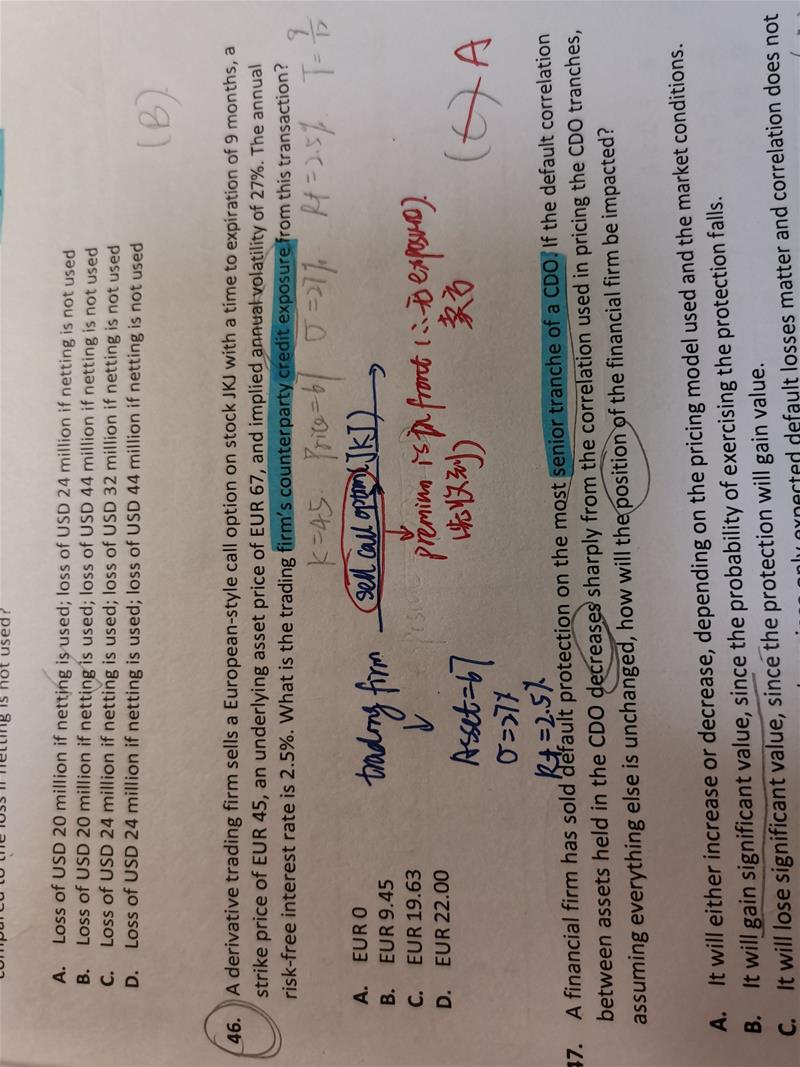 compared to the loss if netting is not used?
A. Loss of USD 20 million if netting is used; loss of USD 24 million if netting is not used
B. Loss of USD 20 million if netting is used; loss of USD 44 million if netting is not used
C. Loss of USD 24 million if netting is used; loss of USD 32 million if netting is not used
D. Loss of USD 24 million if netting is used; loss of USD 44 million if netting is not used
(B).
46. A derivative trading firm sells a European-style call option on stock JKJ with a time to expiration of 9 months, a
strike price of EUR 45, an underlying asset price of EUR 67, and implied annual volatility of 27%. The annual
risk-free interest rate is 2.5%. What is the trading firm's counterparty credit exposure from this transaction?
K=45. Price=67 σ=27% Rf=2.5%. T=9/12
A. EUR 0
B. EUR 9.45
C. EUR 19.63
D. EUR 22.00
trading firm sell call option (JKJ)
premium is in front (∴ no exposure).
(C) A
Asset=67
σ=27%
Rf=2.5%
47. A financial firm has sold default protection on the most senior tranche of a CDO. If the default correlation
between assets held in the CDO decreases sharply from the correlation used in pricing the CDO tranches,
assuming everything else is unchanged, how will the position of the financial firm be impacted?
A. It will either increase or decrease, depending on the pricing model used and the market conditions.
B. It will gain significant value, since the probability of exercising the protection falls.
C. It will lose significant value, since the protection will gain value.
only expected default losses matter and correlation does not